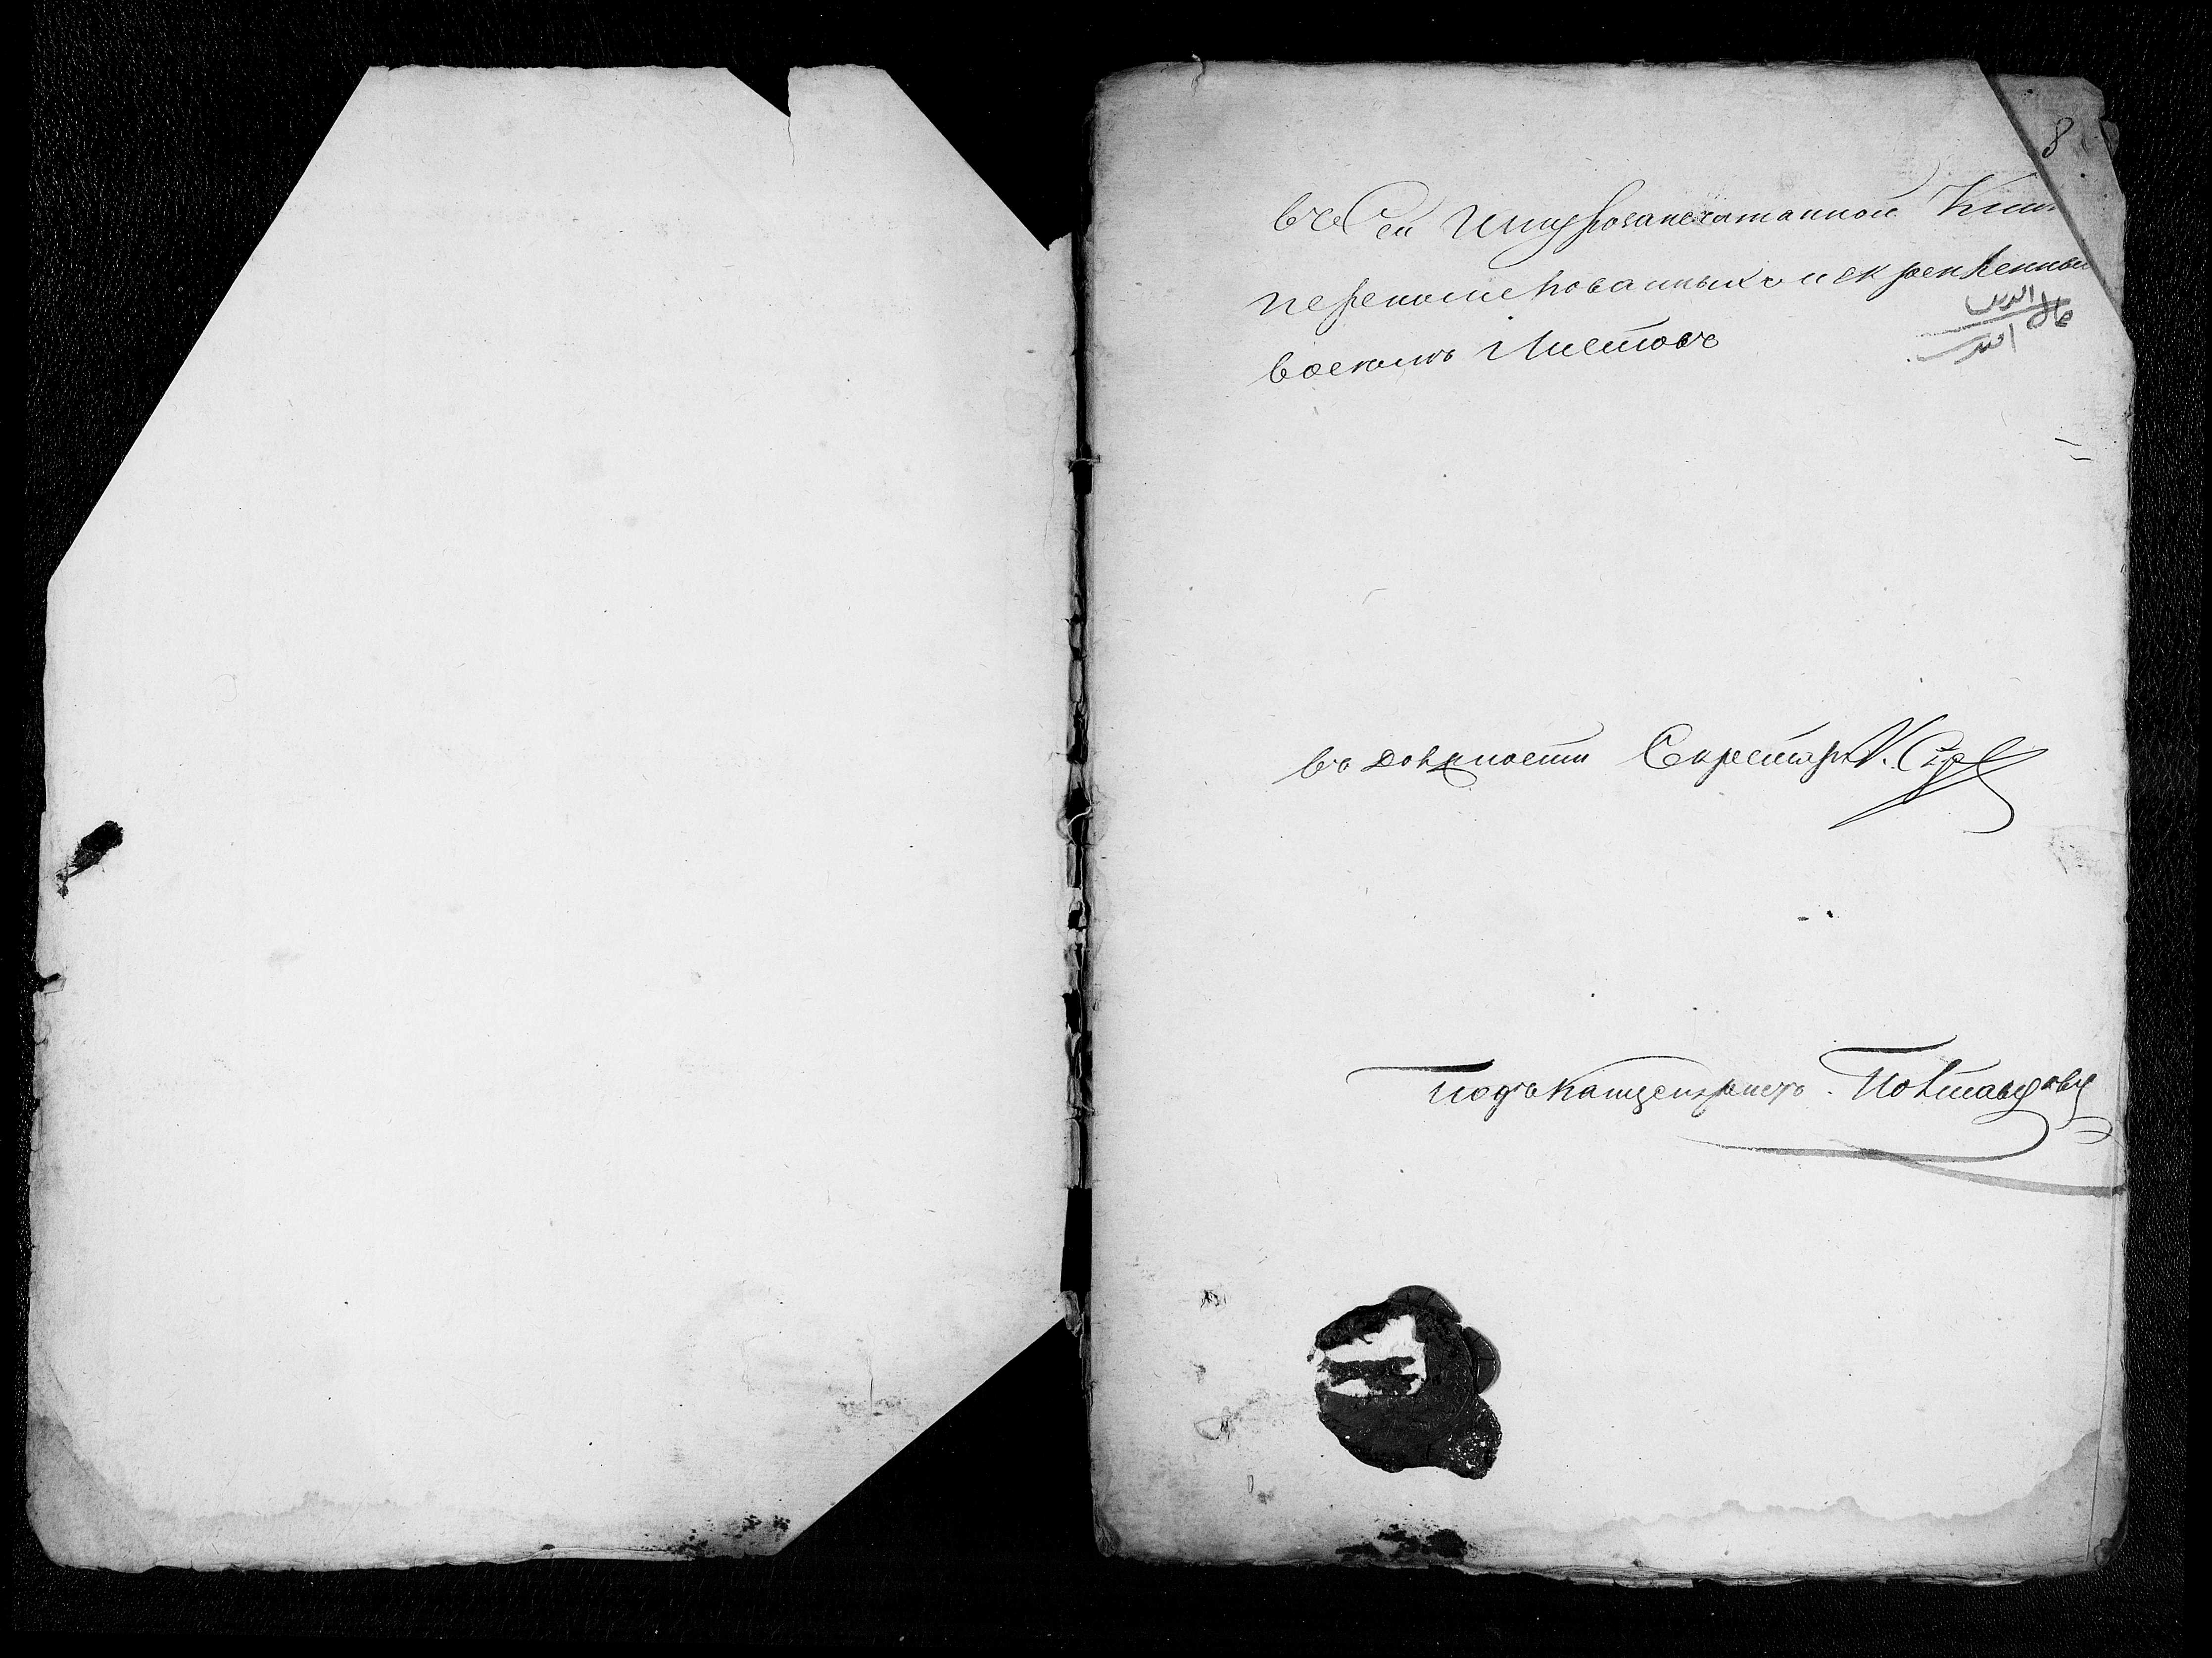 8
въ Сей шнурозапечатанной Книг
перенумерованныхъ и скрепленны
восемь Листовъ
въ должности Секретаря
Подъканцеляристъ